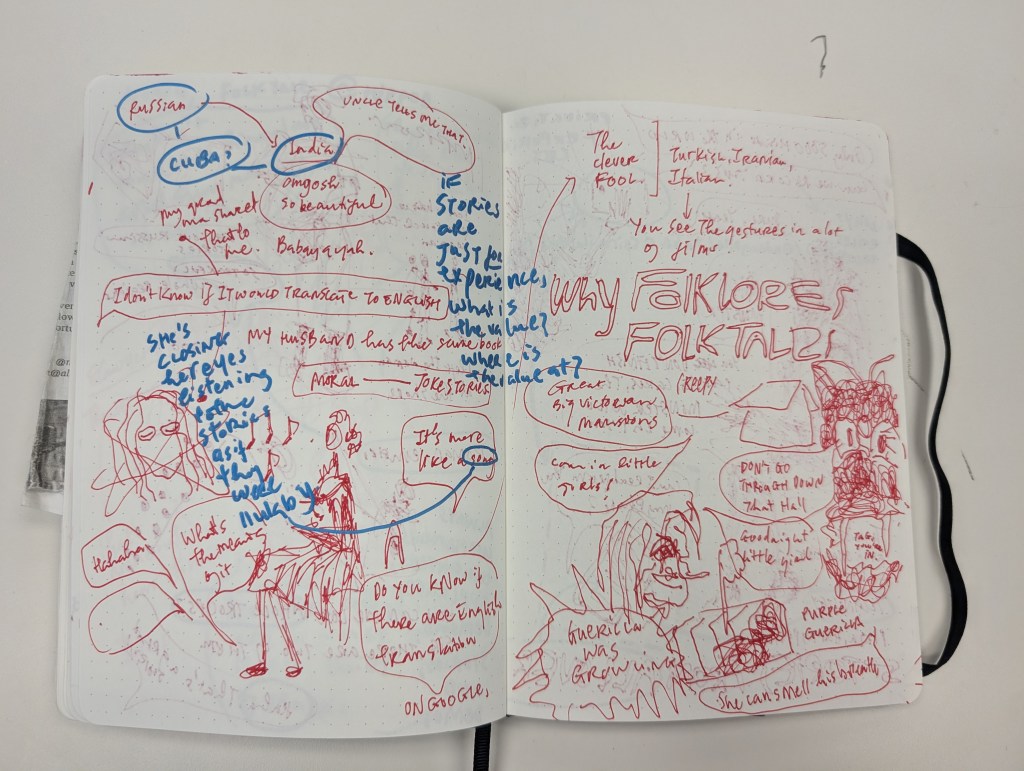 RUSSIAN
CUBA
India
UNCLE TELLS ME THAT.
omgosh
so beautiful
my grand
ma shared
that to
me. Babayagah.
I don't know if IT WOULD TRANSLATE TO ENGLISH
MY HUSBAND has like some book
MORAL — JOKE STORIES
IF
STORIES
are
JUST for
experience,
what is
the value?
where is
the value at?
She's
CLOSING
her eyes
listening
to the
stories
as if
they
were
lullaby
It's more
like a song
Hahaha
What's
the meaning
of it
DO YOU KNOW if
there are English
translation
ON GOOGLE,
The
clever
FOOL.
Turkish, Iranian,
Italian.
You see The gestures in a lot
of films
WHY FOLKLORES
FOLKTALES
Great
Big Victorian
mansions
CREEPY
Come in little
girls!
DON'T GO
THROUGH DOWN
That Hall
Goodnight
little girl
TAG,
YOU'RE
IN
GUERILLA
WAS
GROWLING
PURPLE
GUERILLA
She can smell his breath